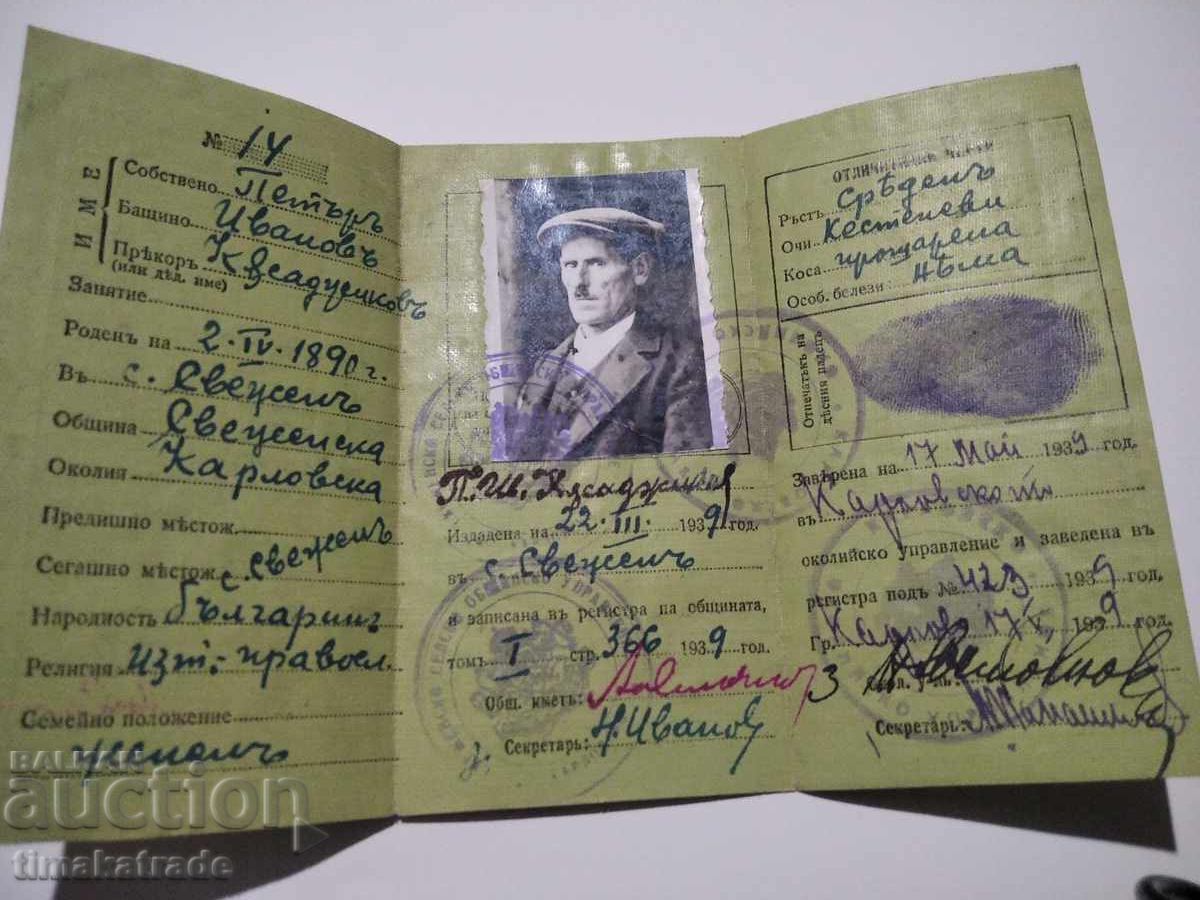 № 14
ИМЕ
Собствено Петъръ
Бащино Ивановъ
Прѣкоръ
(или дѣд. име)
Занятие
Роденъ на 2.IV.1890 г.
Въ с. Свеженъ
Община Свеженска
Околия Карловска
Прелишно мѣстож.
Сегашно мѣстож. с. Свеженъ
Народность българинъ
Религия изт.-правосл.
Семейно положение
жененъ
Издадена на 22.III. 1939 год.
въ с. Свеженъ
и записана въ регистра на общината,
томъ I стр. 366 1939 год.
Общ. кметъ:
Секретарь: Н. Иванов
ОТЛИЧИТЕЛНИ ЧЕРТИ
Ръстъ Срѣденъ
Очи Кестеневи
Коса прошарена
Особ. белези: нѣма
Отпечатъкъ на
дѣсния палецъ
Завѣрена на 17 Май 1939 год.
въ Карловското
околийско управление и заведена въ
регистра подъ № 423 1939 год.
Гр. Карлово 17/V, 1939 г.
Секретарь:
БАЛКАН
auction
timakatrade